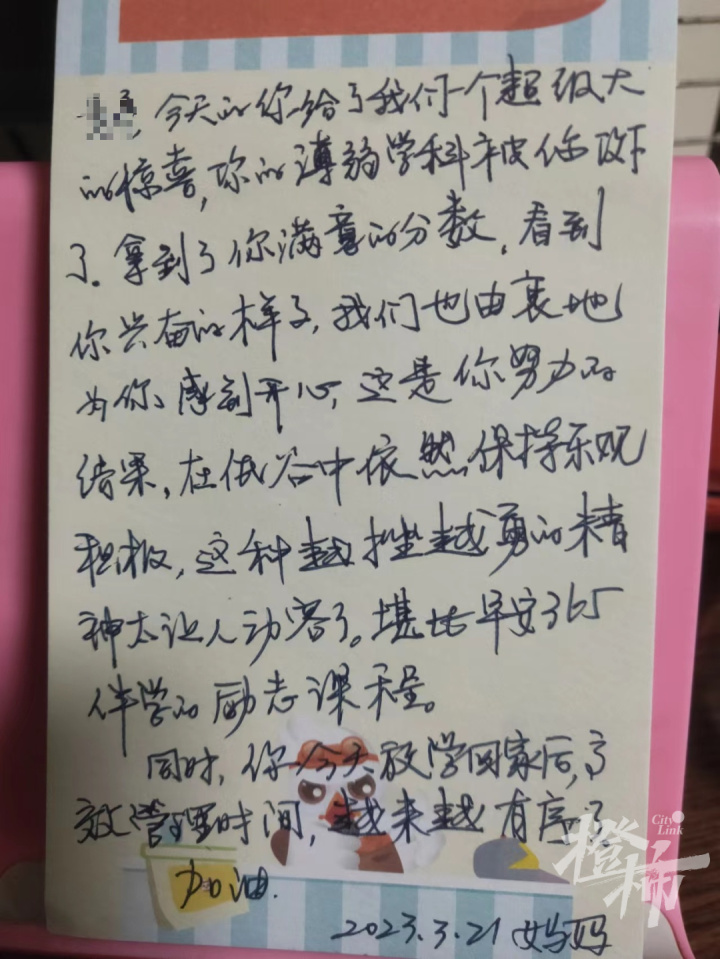 ，今天的你给了我们一个超级大
的惊喜，你的薄弱学科被你攻下
了。拿到了你满意的分数，看到
你兴奋的样子，我们也由衷地
为你感到开心，这是你努力的
结果，在低谷中依然保持乐观
积极，这种越挫越勇的精
神太让人动容了。堪比早安365
伴学的励志课程。
同时，你今天放学回家后，高
效管理时间，越来越有序了
加油.
2023.3.21 妈妈
City Link
橙柿